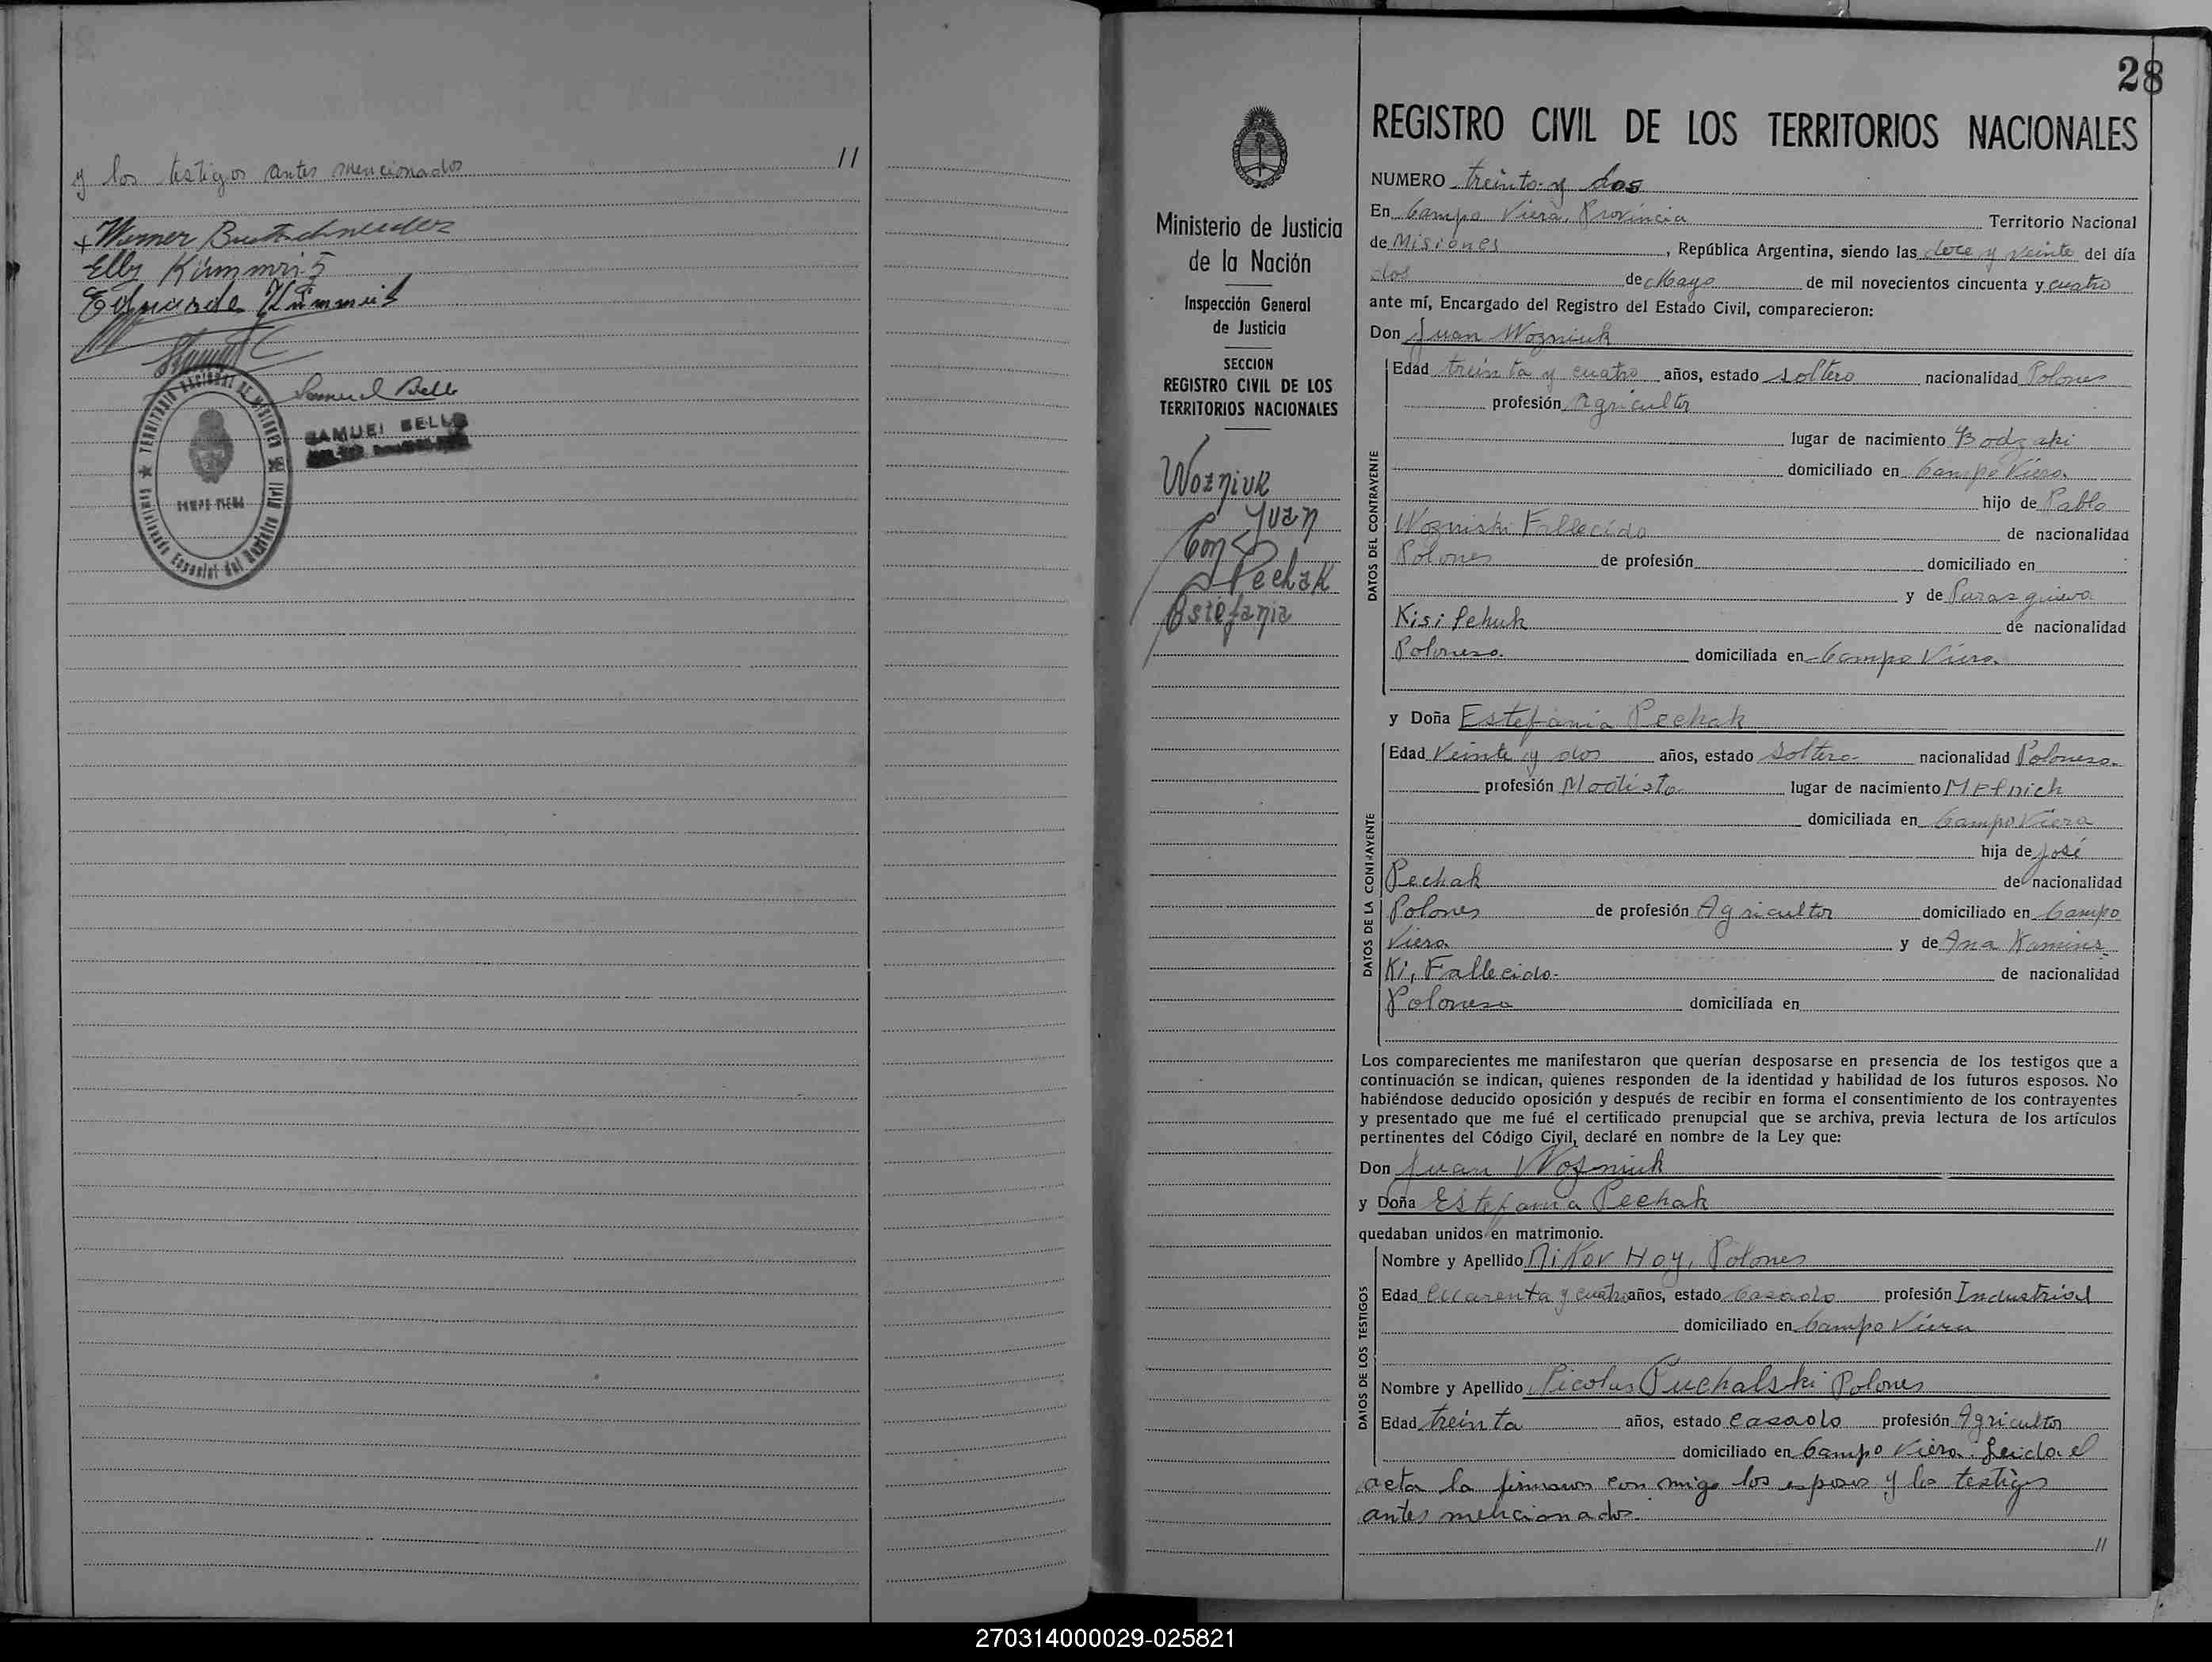 y los testigos antes mencionados 11
Werner
Elly
Eduardo
Samuel Bello
SAMUEL BELLO
TERRITORIO NACIONAL DE MISIONES
CAMPO VIERA
28
REGISTRO CIVIL DE LOS TERRITORIOS NACIONALES
Ministerio de Justicia
de la Nación
Inspección General
de Justicia
SECCION
REGISTRO CIVIL DE LOS
TERRITORIOS NACIONALES
Wozniuk
Juan
Con
Pechak
Estefania
NUMERO treinta y dos
En Campo Viera, Provincia Territorio Nacional
de Misiones, República Argentina, siendo las doce y veinte del día
dos de Mayo de mil novecientos cincuenta y cuatro
ante mí, Encargado del Registro del Estado Civil, comparecieron:
Don Juan Wozniuk
DATOS DEL CONTRAYENTE
Edad treinta y cuatro años, estado soltero nacionalidad Polones
profesión Agricultor
lugar de nacimiento Bodzaki
domiciliado en Campo Viera
hijo de Pablo
Wozniski Fallecido de nacionalidad
Polones de profesión domiciliado en
y de Parasquieva
Kisilehuk de nacionalidad
Polonesa domiciliada en Campo Viera
y Doña Estefania Pechak
DATOS DE LA CONTRAYENTE
Edad Veinte y dos años, estado soltera nacionalidad Polonesa
profesión Modista lugar de nacimiento Melnich
domiciliada en Campo Viera
hija de José
Pechak de nacionalidad
Polones de profesión Agricultor domiciliado en Campo
Viera y de Ana Kamins
Ki, Fallecida de nacionalidad
Polonesa domiciliada en
Los comparecientes me manifestaron que querían desposarse en presencia de los testigos que a
continuación se indican, quienes responden de la identidad y habilidad de los futuros esposos. No
habiéndose deducido oposición y después de recibir en forma el consentimiento de los contrayentes
y presentado que me fué el certificado prenupcial que se archiva, previa lectura de los artículos
pertinentes del Código Civil, declaré en nombre de la Ley que:
Don Juan Wozniuk
y Doña Estefania Pechak
quedaban unidos en matrimonio.
DATOS DE LOS TESTIGOS
Nombre y Apellido Nikor Hoy, Polones
Edad Cuarenta y cuatro años, estado Casado profesión Industrial
domiciliado en Campo Viera
Nombre y Apellido Nicolas Puchalski Polones
Edad treinta años, estado casado profesión Agricultor
domiciliado en Campo Viera. Leida el
acta la firmaron con migo los esposos y los testigos
antes mencionados.
11
270314000029-025821